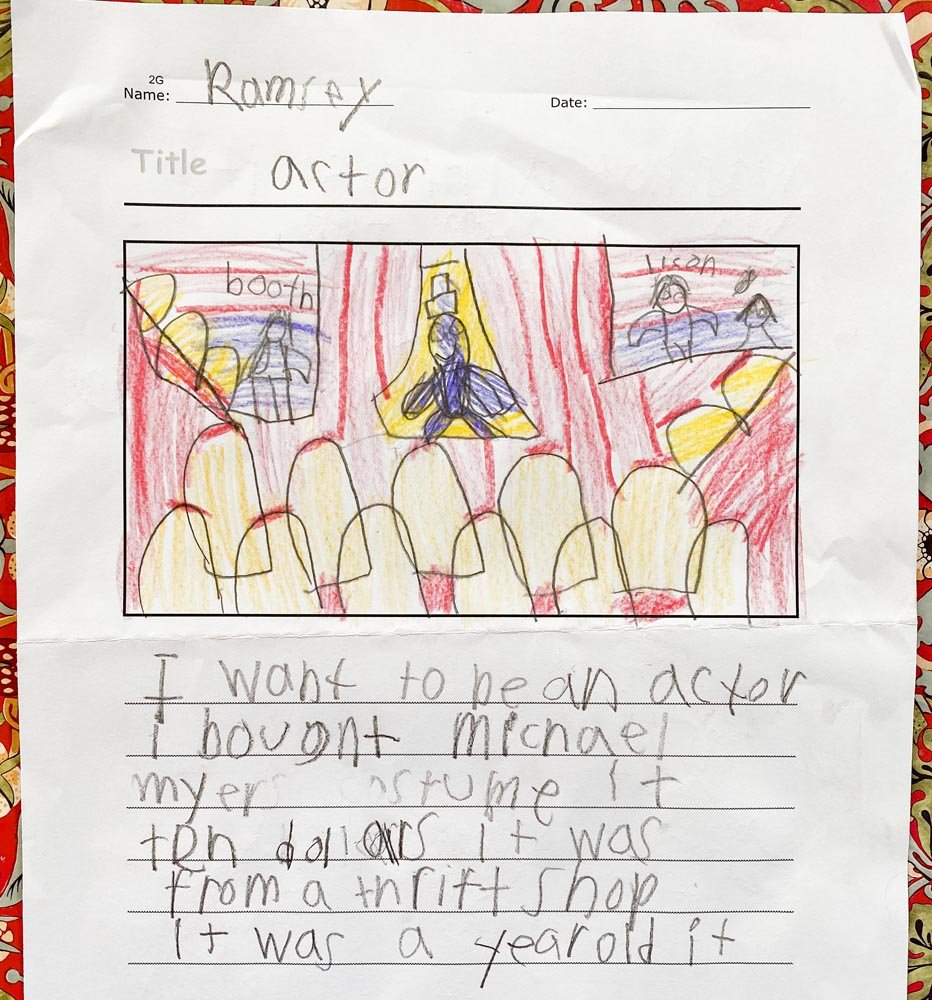 2G
Name: Ramsey Date:
Title actor
booth
I want to be an actor
i bought michael
myers costume it
ten dollars it was
from a thrift shop
It was a year old it